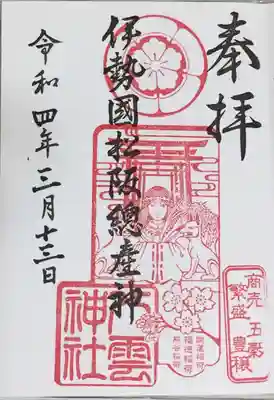 奉拝
伊勢國松阪總産神
令和四年三月十三日
商売 五穀
繁盛 豊穣
八雲
神社